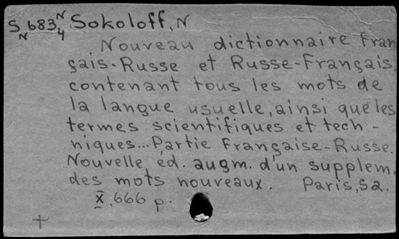 S N 683 N 4 Sokoloff, N
Nouveau dictionnaire Fran
çais-Russe et Russe-Français
contenant tous les mots de
la langue usuelle, ainsi que les
termes scientifiques et tech-
niques... Partie Française-Russe.
Nouvelle éd. augm. d'un supplem.
des mots nouveaux. Paris, s.a.
X, 666 p.